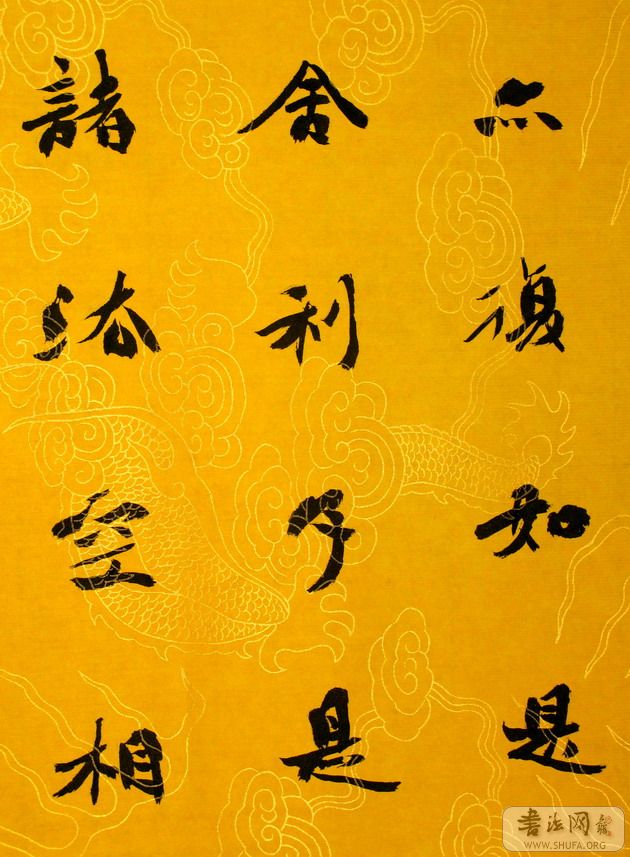 亦復如是
舍利子是
諸法空相
書法网
WWW.SHUFA.ORG